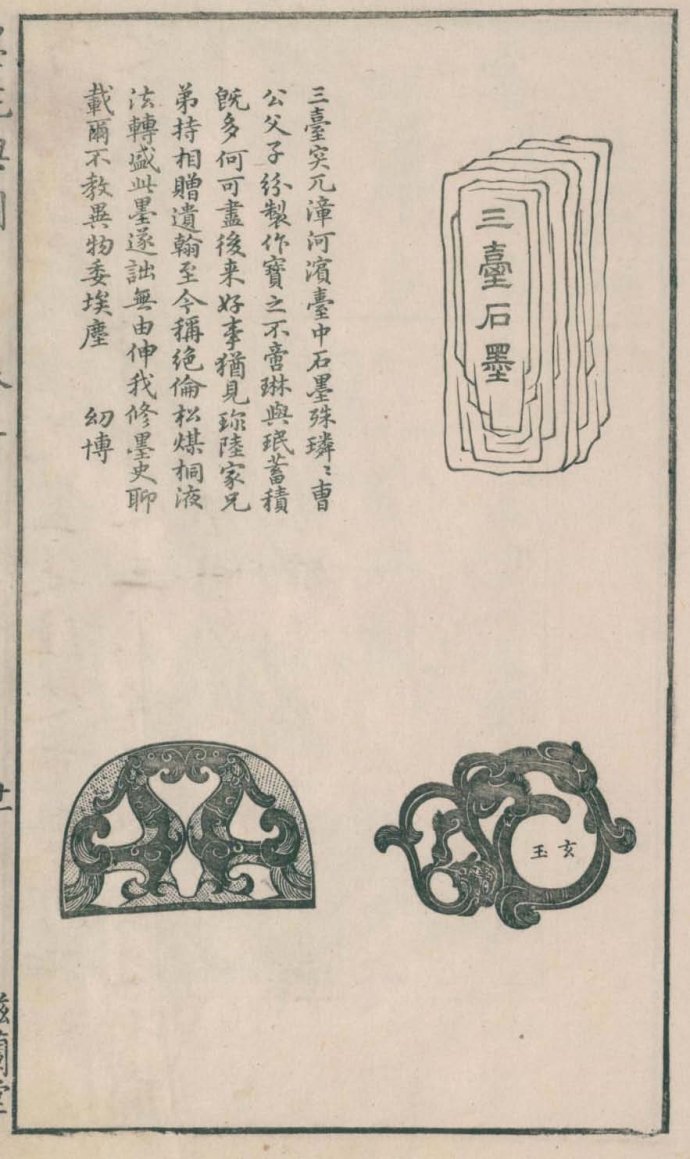 三臺石墨
三臺突兀漳河濱臺中石墨殊璘〻曹
公父子紛製作寶之不啻琳與珉蓄積
既多何可盡後来好事猶見珎陸家兄
弟持相贈遺翰至今稱絶倫松煤桐液
法轉盛此墨遂詘無由伸我修墨史聊
載爾不教異物委埃塵 幼博
玄
玉